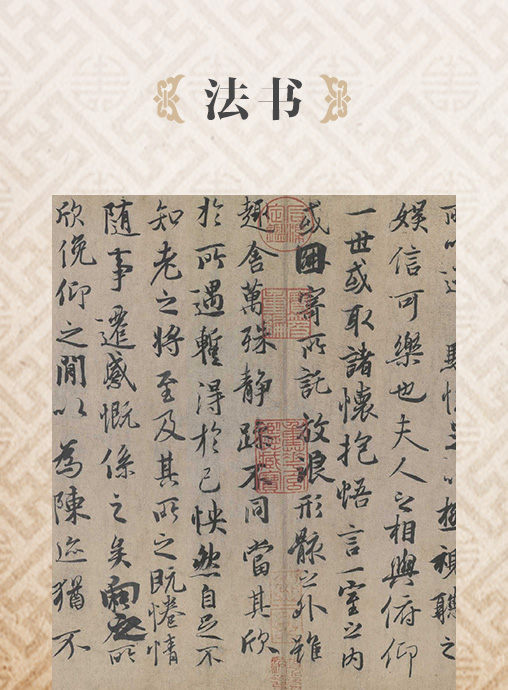 法书
騁懷足以極視聽之
娛信可樂也夫人之相與俯仰
一世或取諸懷抱悟言一室之內
或因寄所託放浪形骸之外雖
趣舍萬殊静躁不同當其欣
於所遇暫得於己怏然自足不
知老之將至及其所之既惓情
随事遷感慨係之矣向之所
欣俛仰之閒以為陳迹猶不